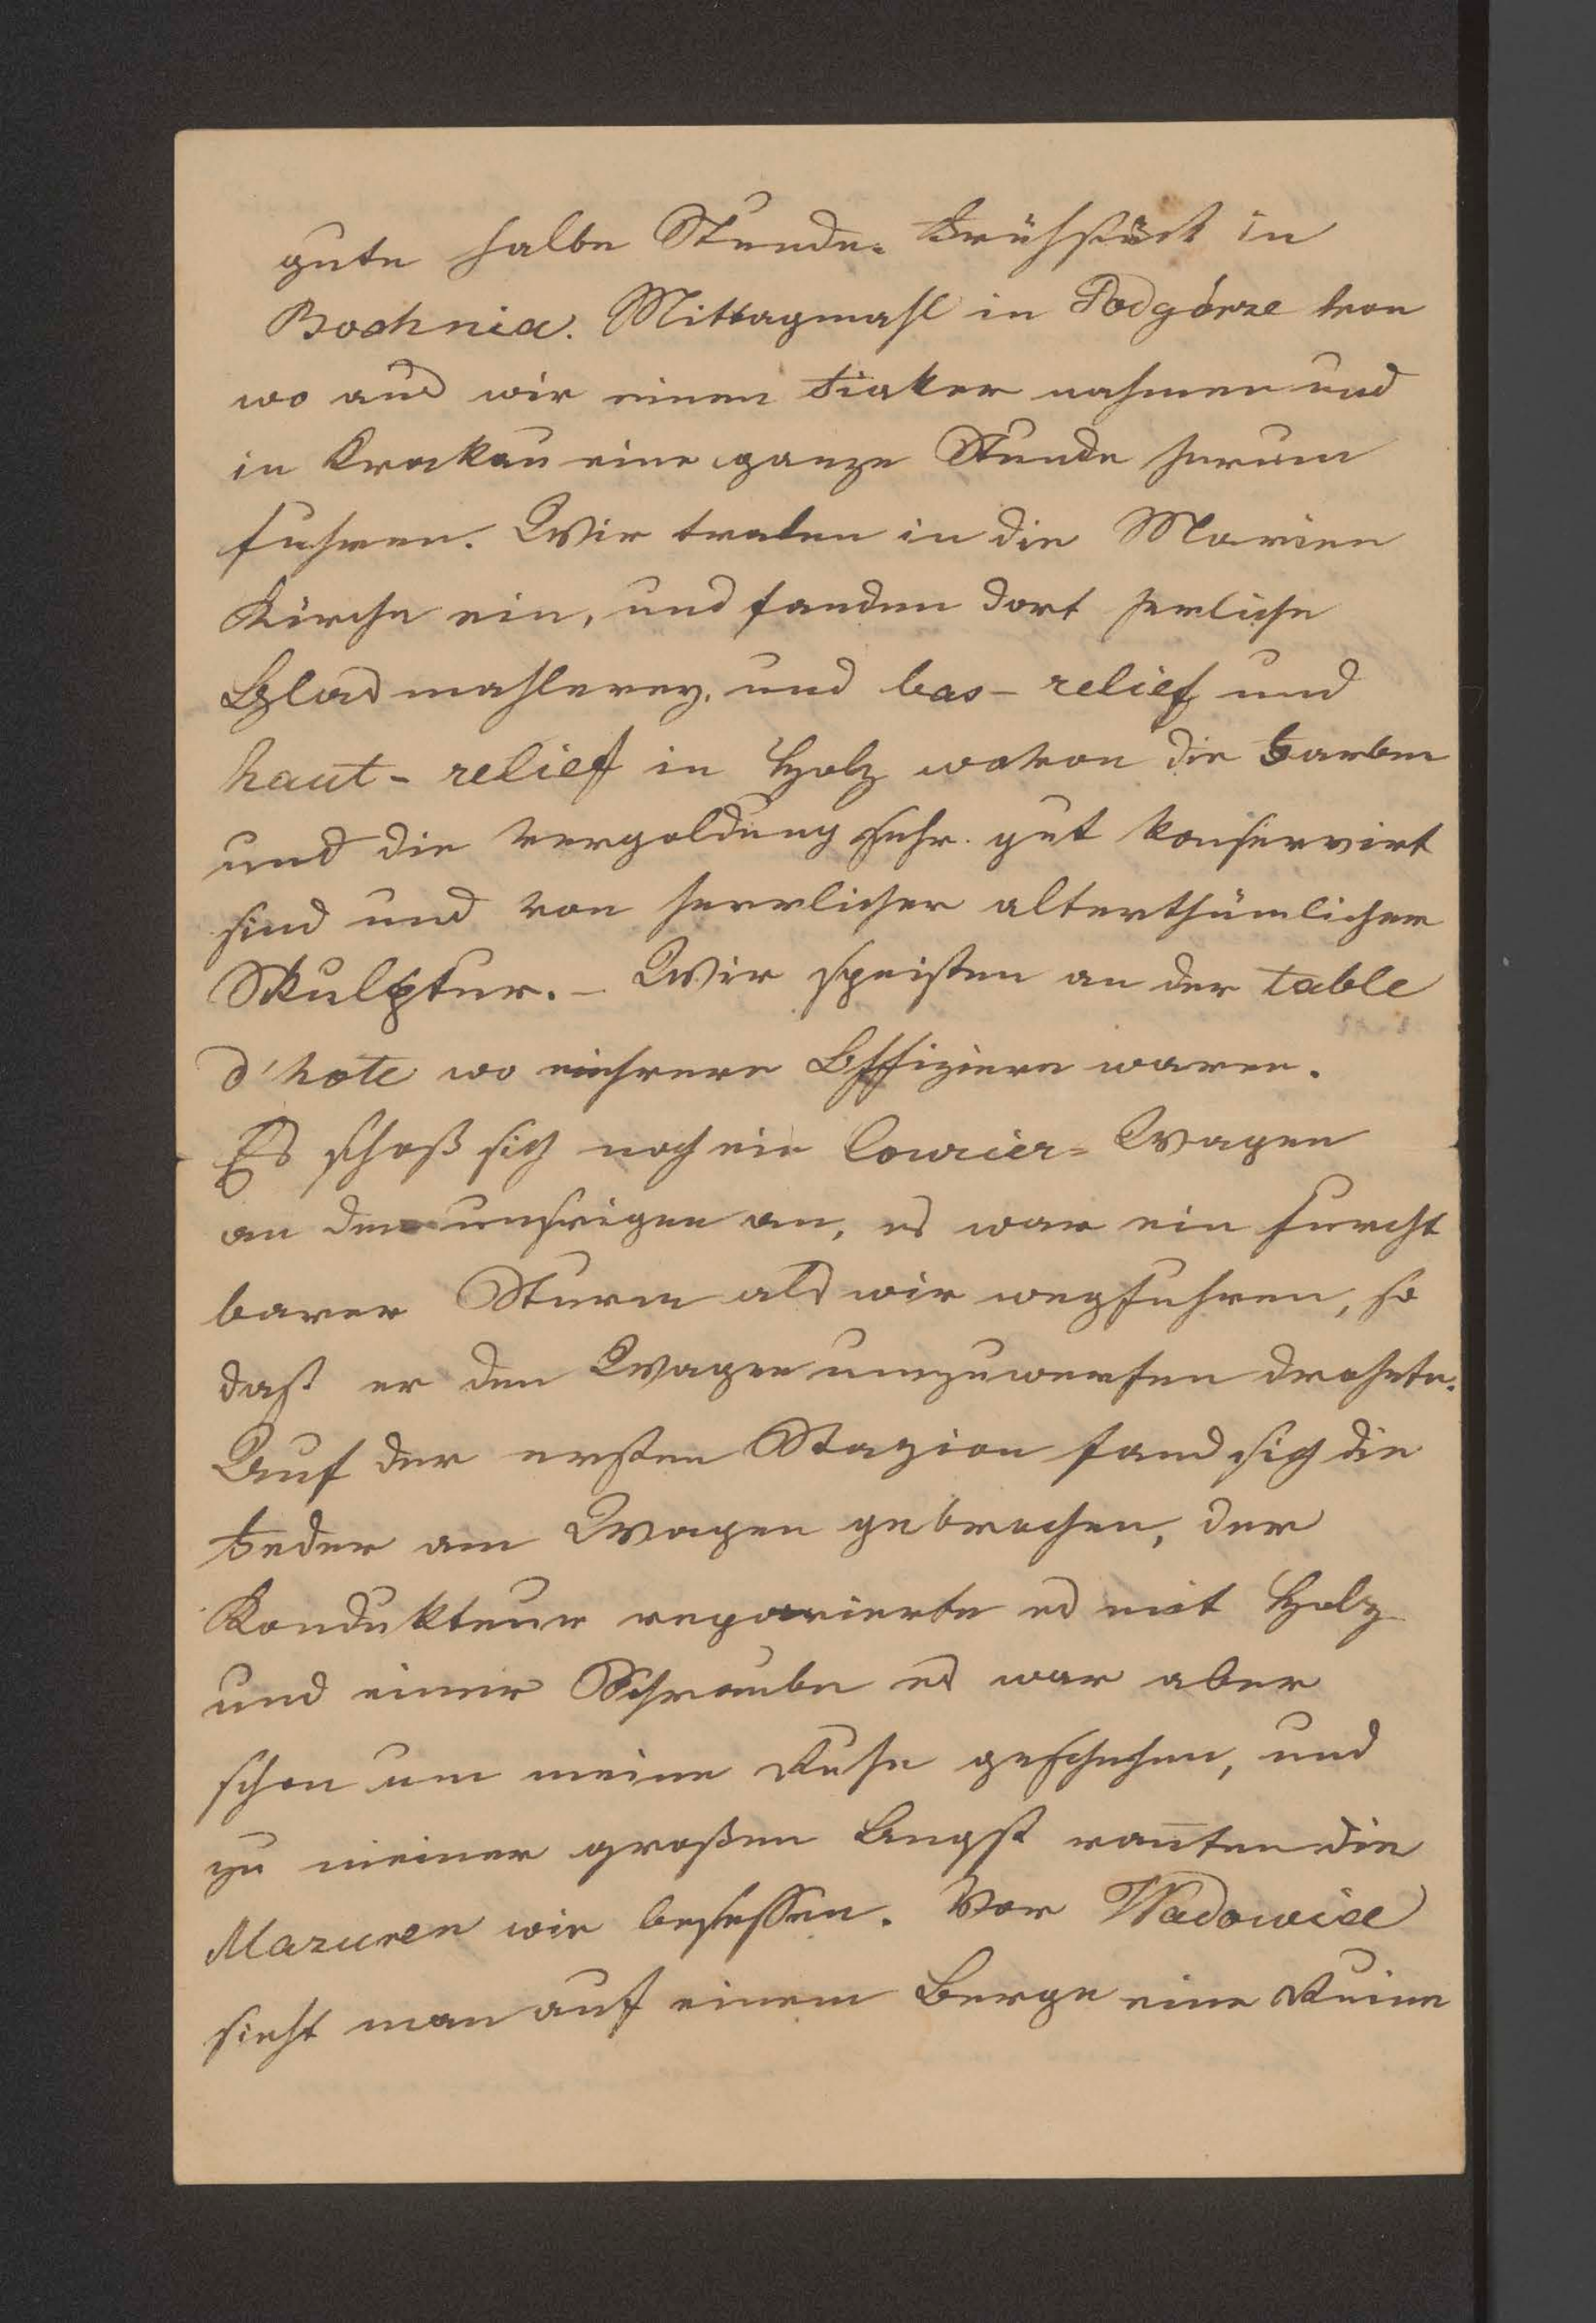 gute halbe Stunde. Frühstück in
Bochnia. Mittagmahl in Podgórze von
wo aus wir einen Fiaker nahmen und
in Krakau eine ganze Stunde herum
fuhren. Wir traten in die Marien
Kirche ein, und fanden dort herliche
Glasmahlerey, und bas-relief und
haut-relief in Holz wovon die Farben
und die Vergoldung sehr gut konservirt
sind und von herrlicher alterthümlicher
Skulptur. – Wir speisten an der table
d'hote wo mehrere Offiziere waren.
Es schoß sich noch ein Courier-Wagen
an den unsrigen an, es war ein furcht
barer Sturm als wir wegfuhren, so
daß er den Wagen umzuwerfen drohete.
Auf der ersten Stazion fand sich die
Feder am Wagen gebrochen, der
Kondukteur reparierte es mit Holz
und einer Schraube es war aber
schon um meine Ruhe geschehen, und
zu meiner großen Angst rañten die
Mazuren wie besessen. Vor Wadowice
sieht man auf einem Berge eine Ruine